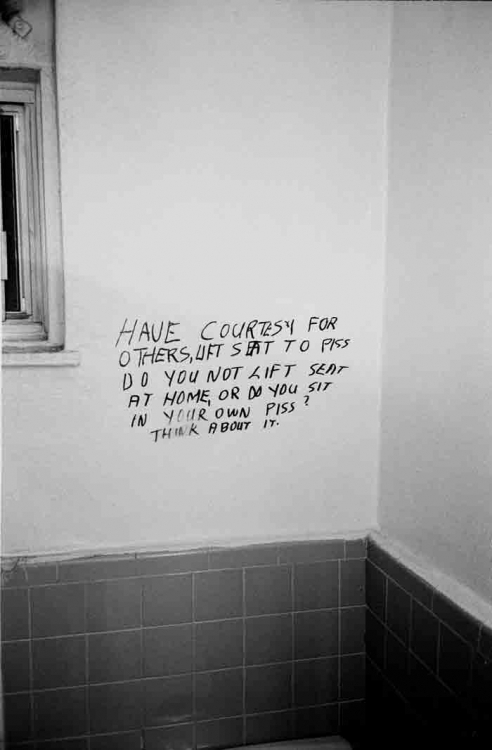 HAVE COURTESY FOR
OTHERS, LIFT SEAT TO PISS
DO YOU NOT LIFT SEAT
AT HOME, OR DO YOU SIT
IN YOUR OWN PISS?
THINK ABOUT IT.